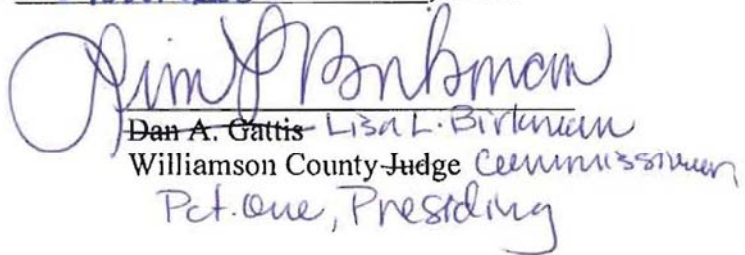 Lisa L. Birkman
Dan A. Gattis Lisa L. Birkman
Williamson County Judge Commissioner,
Pct. One, Presiding